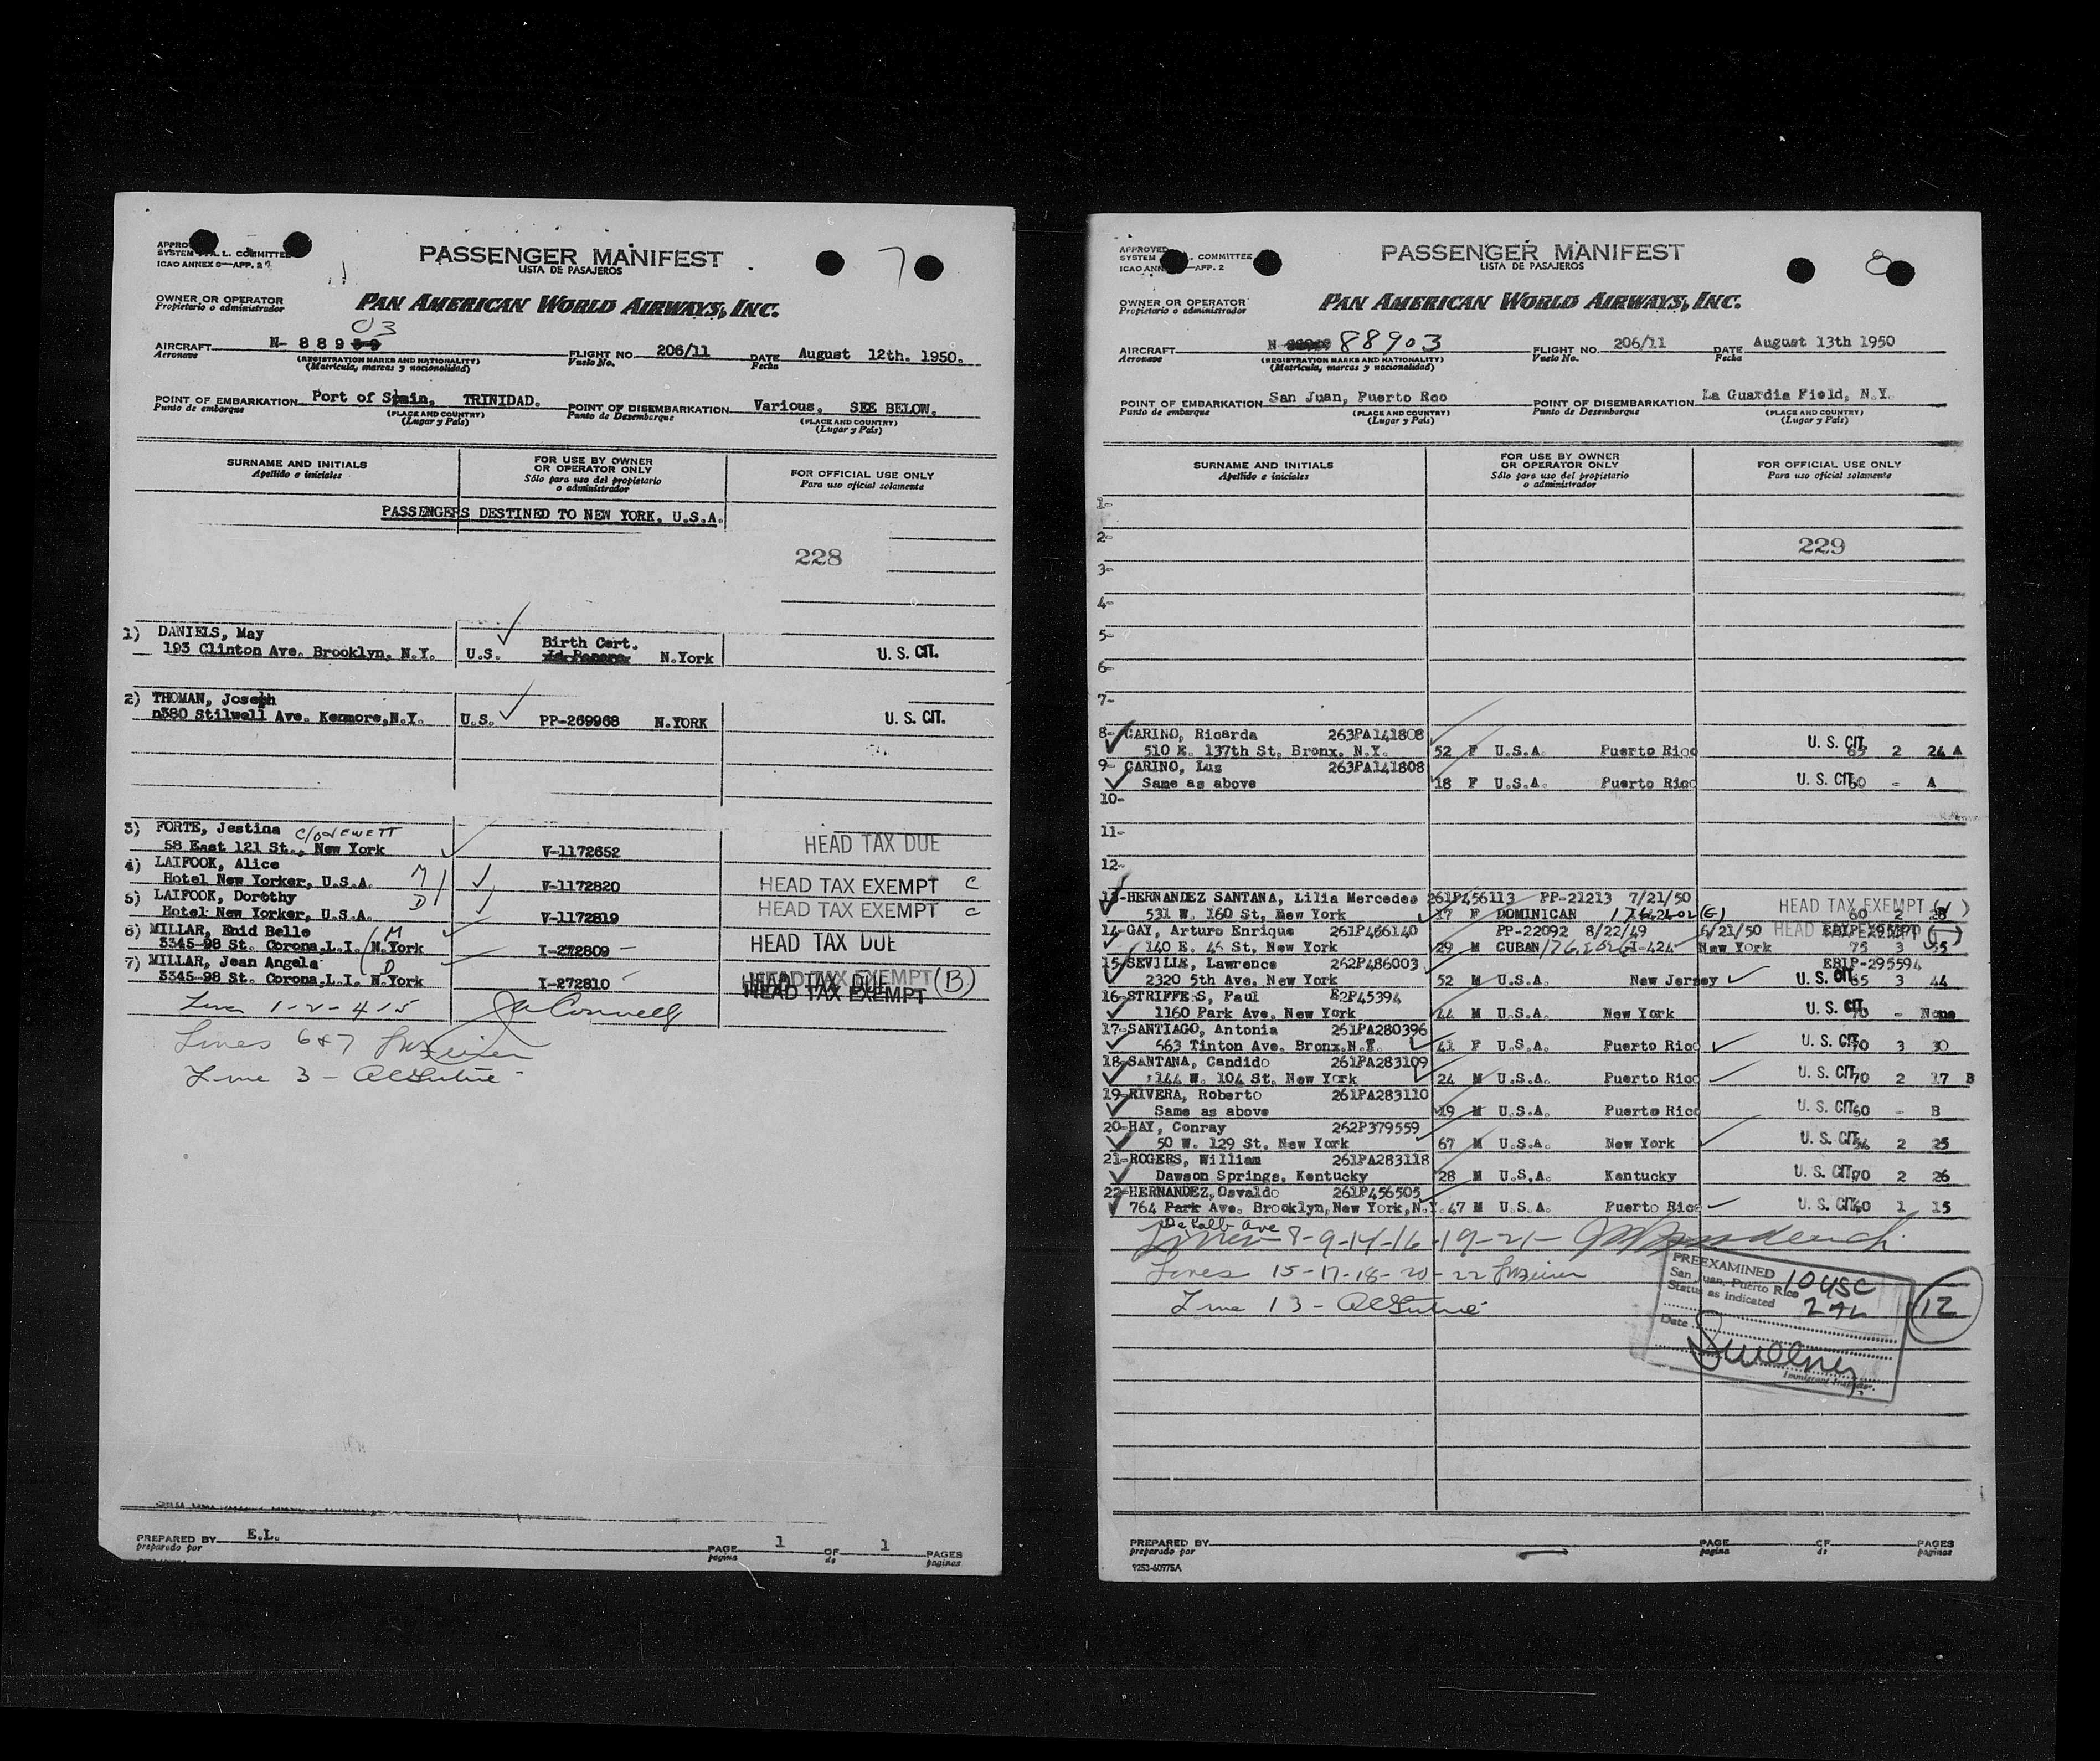 APPROVED
SYSTEM F.A.L. COMMITTEE
ICAO ANNEX 9—APP. 2
PASSENGER MANIFEST
LISTA DE PASAJEROS
7
OWNER OR OPERATOR
Propietario o administrador
PAN AMERICAN WORLD AIRWAYS, INC.
03
AIRCRAFT N- 889
Aeronave
(REGISTRATION MARKS AND NATIONALITY)
(Matrícula, marcas y nacionalidad)
FLIGHT NO. 206/11
Vuelo No.
DATE August 12th. 1950.
Fecha
POINT OF EMBARKATION Port of Spain, TRINIDAD.
Punto de embarque
(PLACE AND COUNTRY)
(Lugar y País)
POINT OF DISEMBARKATION Various. SEE BELOW.
Punto de Desembarque
(PLACE AND COUNTRY)
(Lugar y País)
SURNAME AND INITIALS
Apellido e iniciales
FOR USE BY OWNER
OR OPERATOR ONLY
Sólo para uso del propietario
o administrador
FOR OFFICIAL USE ONLY
Para uso oficial solamente
PASSENGERS DESTINED TO NEW YORK, U.S.A.
228
1) DANIELS, May Birth Cert.
193 Clinton Ave. Brooklyn, N.Y. U.S. N.York U. S. CIT.
2) THOMAN, Joseph
n380 Stilwell Ave. Kenmore,N.Y. U.S. PP-269968 N.YORK U. S. CIT.
3) FORTE, Jestina C/O JEWETT
58 East 121 St., New York V-1172652 HEAD TAX DUE
4) LAIFOOK, Alice
Hotel New Yorker, U.S.A. M V-1172820 HEAD TAX EXEMPT C
5) LAIFOOK, Dorothy
Hotel New Yorker, U.S.A. D V-1172819 HEAD TAX EXEMPT C
6) MILLAR, Enid Belle
3345-98 St. Corona,L.I. N.York M I-272809 HEAD TAX DUE
7) MILLAR, Jean Angela
3345-98 St. Corona,L.I. N.York D I-272810 HEAD TAX EXEMPT (B)
HEAD TAX DUE
HEAD TAX EXEMPT
Lines 1-2-4-5
Lines 6&7
Line 3 -
PREPARED BY E.L.
preparado por
PAGE 1 OF 1 PAGES
pagina de paginas
APPROVED
SYSTEM COMMITTEE
ICAO ANNEX —APP. 2
PASSENGER MANIFEST
LISTA DE PASAJEROS
8
OWNER OR OPERATOR
Propietario o administrador
PAN AMERICAN WORLD AIRWAYS, INC.
AIRCRAFT N 88903
Aeronave
(REGISTRATION MARKS AND NATIONALITY)
(Matrícula, marcas y nacionalidad)
FLIGHT NO. 206/11
Vuelo No.
DATE August 13th 1950
Fecha
POINT OF EMBARKATION San Juan, Puerto Rco
Punto de embarque
(PLACE AND COUNTRY)
(Lugar y País)
POINT OF DISEMBARKATION La Guardia Field, N.Y.
Punto de Desembarque
(PLACE AND COUNTRY)
(Lugar y País)
SURNAME AND INITIALS
Apellido e iniciales
FOR USE BY OWNER
OR OPERATOR ONLY
Sólo para uso del propietario
o administrador
FOR OFFICIAL USE ONLY
Para uso oficial solamente
1-
2- 229
3-
4-
5-
6-
7-
8- CARINO, Ricarda 263PA141808
510 E. 137th St. Bronx, N.Y. 52 F U.S.A. Puerto Rico U. S. CIT. 65 2 24 A
9- CARINO, Luz 263PA141808
Same as above 18 F U.S.A. Puerto Rico U. S. CIT. 60 - A
10-
11-
12-
13-HERNANDEZ SANTANA, Lilia Mercedes 261P456113 PP-21213 7/21/50 HEAD TAX EXEMPT
531 W. 160 St, New York 17 F DOMINICAN (G) 60 2 28
14-GAY, Arturo Enrique 261P466140 PP-22092 8/22/49 6/21/50 HEAD TAX EXEMPT
140 E. 46 St. New York 29 M CUBAN I-424 New York 75 3 55
15-SEVILLE, Lawrence 262P486003 EBIP-295594
2320 5th Ave. New York 52 M U.S.A. New Jersey U. S. CIT. 65 3 44
16-STRIFFERS, Paul E2P45394
1160 Park Ave. New York 44 M U.S.A. New York U. S. CIT. - None
17-SANTIAGO, Antonia 261PA280396
663 Tinton Ave. Bronx.N.Y. 41 F U.S.A. Puerto Rico U. S. CIT. 70 3 30
18-SANTANA, Candido 261PA283109
144 W. 104 St. New York 24 M U.S.A. Puerto Rico U. S. CIT. 70 2 17 B
19-RIVERA, Roberto 261PA283110
Same as above 19 M U.S.A. Puerto Rico U. S. CIT. 60 - B
20-HAY, Conray 262P379559
50 W. 129 St. New York 67 M U.S.A. New York U. S. CIT. 2 25
21-ROGERS, William 261PA283118
Dawson Springs, Kentucky 28 M U.S.A. Kentucky U. S. CIT. 90 2 26
22-HERNANDEZ,Osvaldo 261P456505
764 Park Ave. Brooklyn,New York,N.Y. 47 M U.S.A. Puerto Rico U. S. CIT. 1 15
De Kalb Ave
Lines 8-9-14-16-19-21-
Lines 15-17-18-20-22
Line 13 -
PREEXAMINED
San Juan, Puerto Rico 10 USC
Status as indicated
Date
Sweeney
Immigrant Inspector.
12
PREPARED BY
preparado por
PAGE OF PAGES
pagina de paginas
9253-60975A